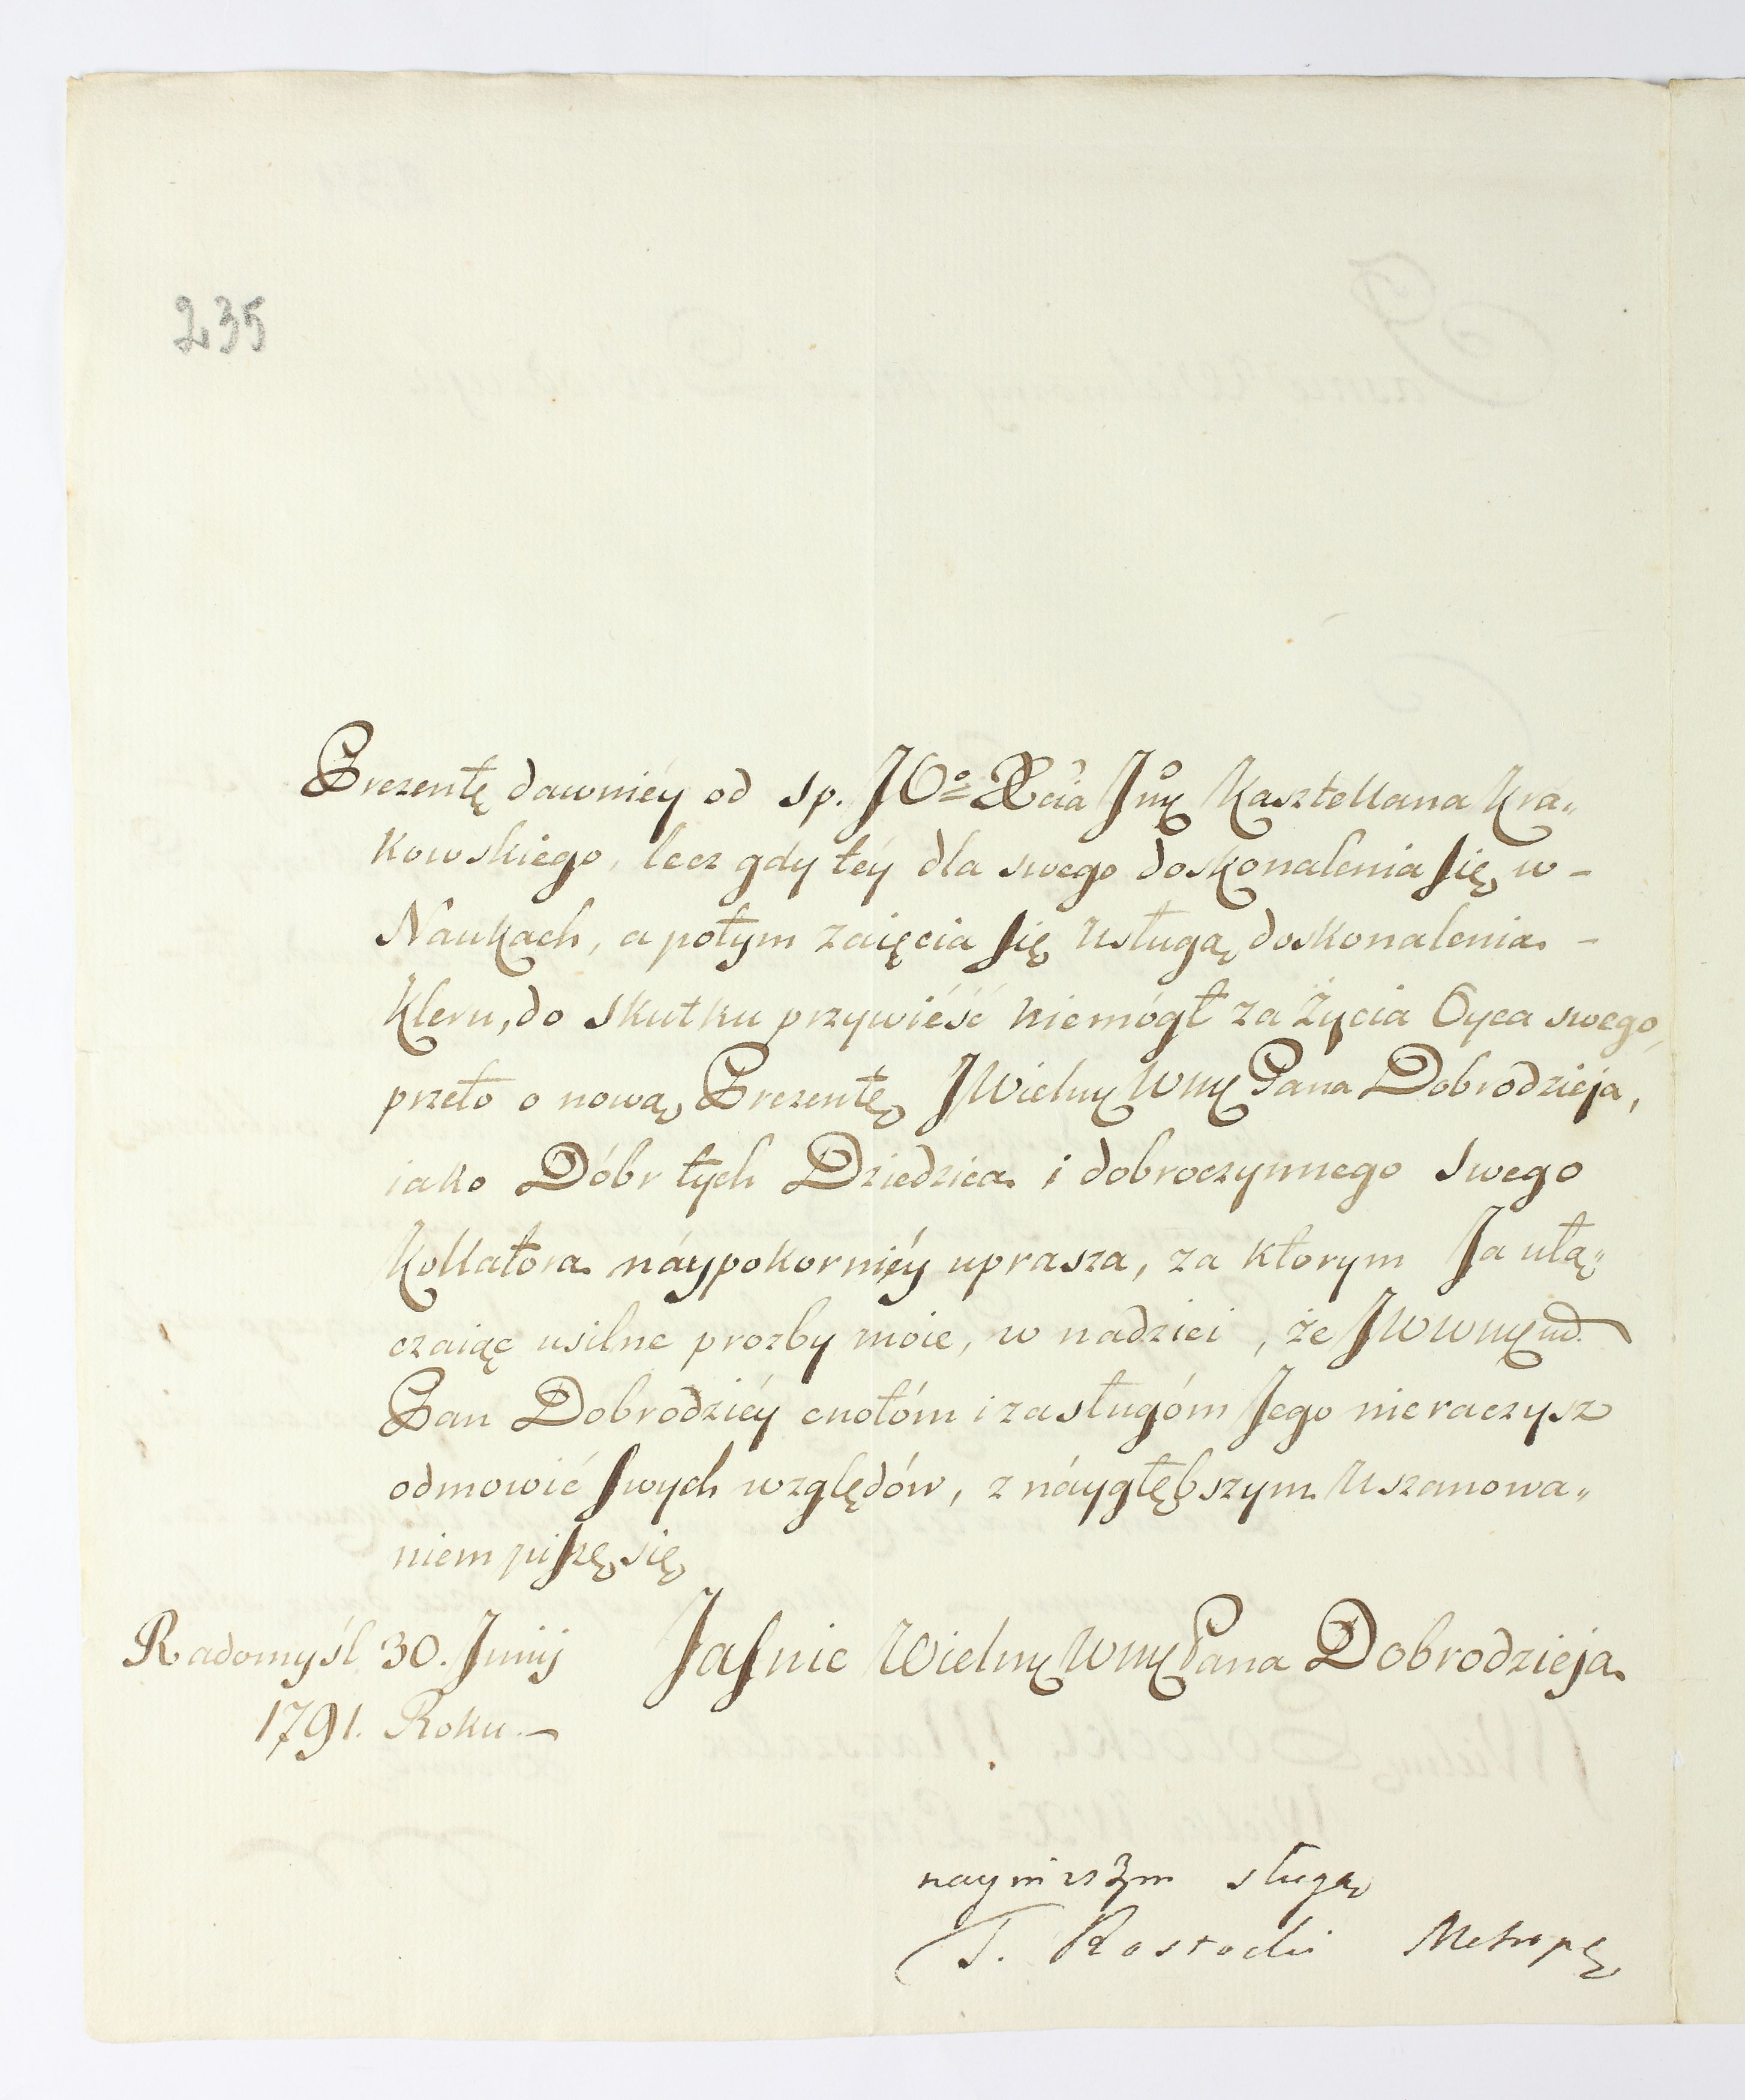 235
Prezentę dawniéy od sp. JOo Xcia Jmci Kasztellana Kra„
kowskiego, lecz gdy téy dla swego doskonalenia się w -
Naukach, a potym zaięcia się usługą doskonalenia -
Kleru, do skutku przywiéść niemógł za życia Oyca swego,
przeto o nową Prezentę JWielm Wm Pana Dobrodzieja,
iako Dóbr tych Dziedzica i dobroczynnego swego
Kollatora náypokorniéy uprasza, za ktorym Ja utą„
czaiąc usilne prozby moie, w nadziei, że JWWm
Pan Dobrodziéy cnotóm i zasługóm Jego nieraczysz
odmowić swych względów, z náygłębszym uszanowa„
niem piszę się
Radomyśl 30. Junij Jaśnie Wielm Wm Pana Dobrodzieja
1791. Roku. -
nayniższym sługą
T. Rostocki Metrop